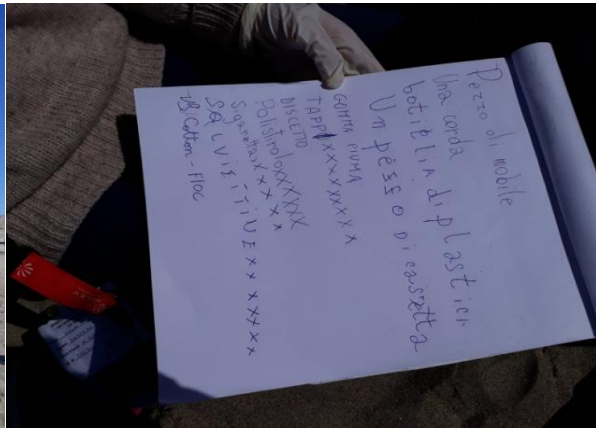 Pezzo di mobile
Una corda
botiElia di plastici
Un pesso Di casetta
GOMMA PIUMA
TAPPI XXXXXXXX
DISCETTO
Polistirolo XXXXXXX
Sigaretta XXXXX
XXXXXXXX
Cotton - FIOC